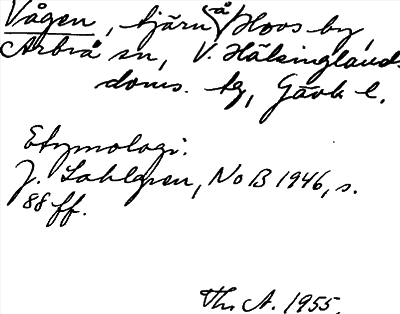 Vågen, tjärn på Hoos by,
Arbrå sn, V. Hälsinglands
doms. tg, Gävle l.
Etymologi.
J. Sahlgren, NoB 1946, s.
88 ff.
Th. A. 1955.